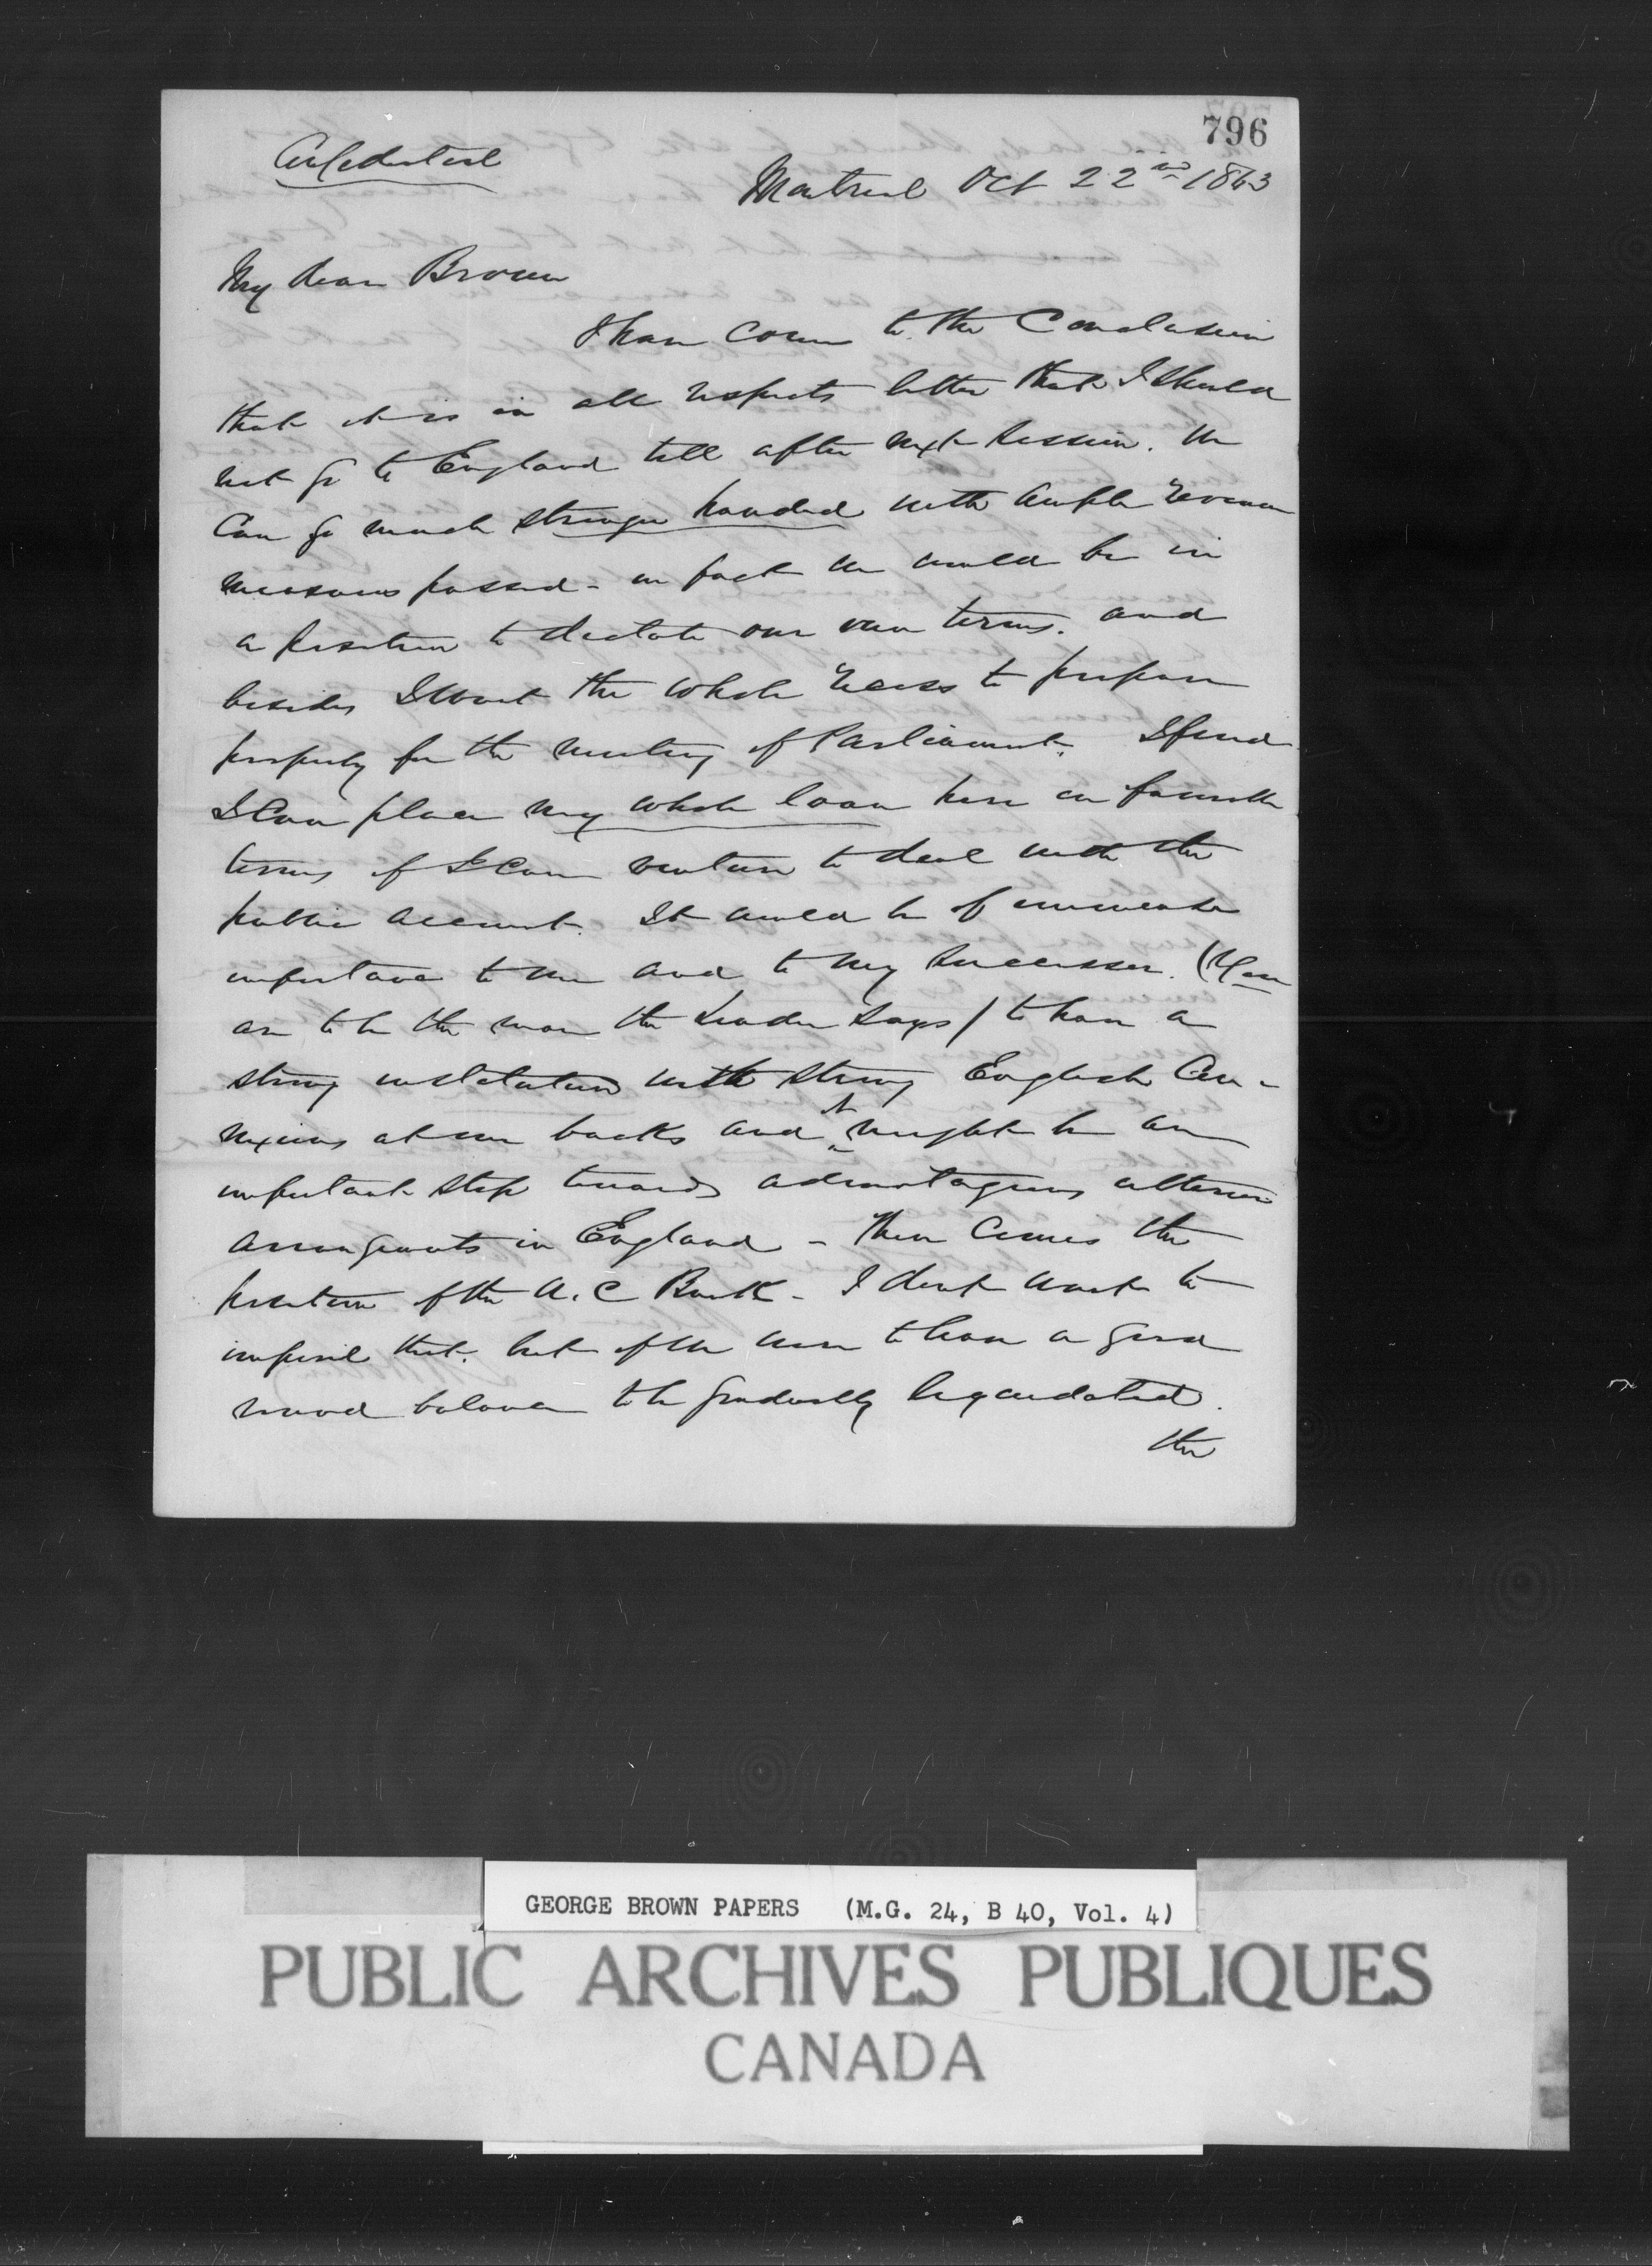 796
Confidential
Montreal Oct 22nd 1863
My dear Brown
I have come to the Conclusion
that it is in all respects better that I should
not go to England till after next Session. We
Can go much stronger handed with ample revenue
measures passed - in fact we would be in
a position to dictate our own terms. and
besides I want the whole recess to prepare
properly for the meeting of Parliament. I find
I Can place my whole loan here on favorable
terms if I Can venture to deal with the
public account. It would be of immense
importance to me and to my successor. (You
are to be the man the Leader says) to have a
strong institution with strong English Con-
nexions at our backs and it might be an
important step towards advantageous ulterior
arrangements in England - Then Comes the
position of the U.C Bank - I dont want to
imperil that. but if we were to have a good
round balance to be gradually liquidated.
the
GEORGE BROWN PAPERS (M.G. 24, B 40, Vol. 4)
PUBLIC ARCHIVES PUBLIQUES
CANADA